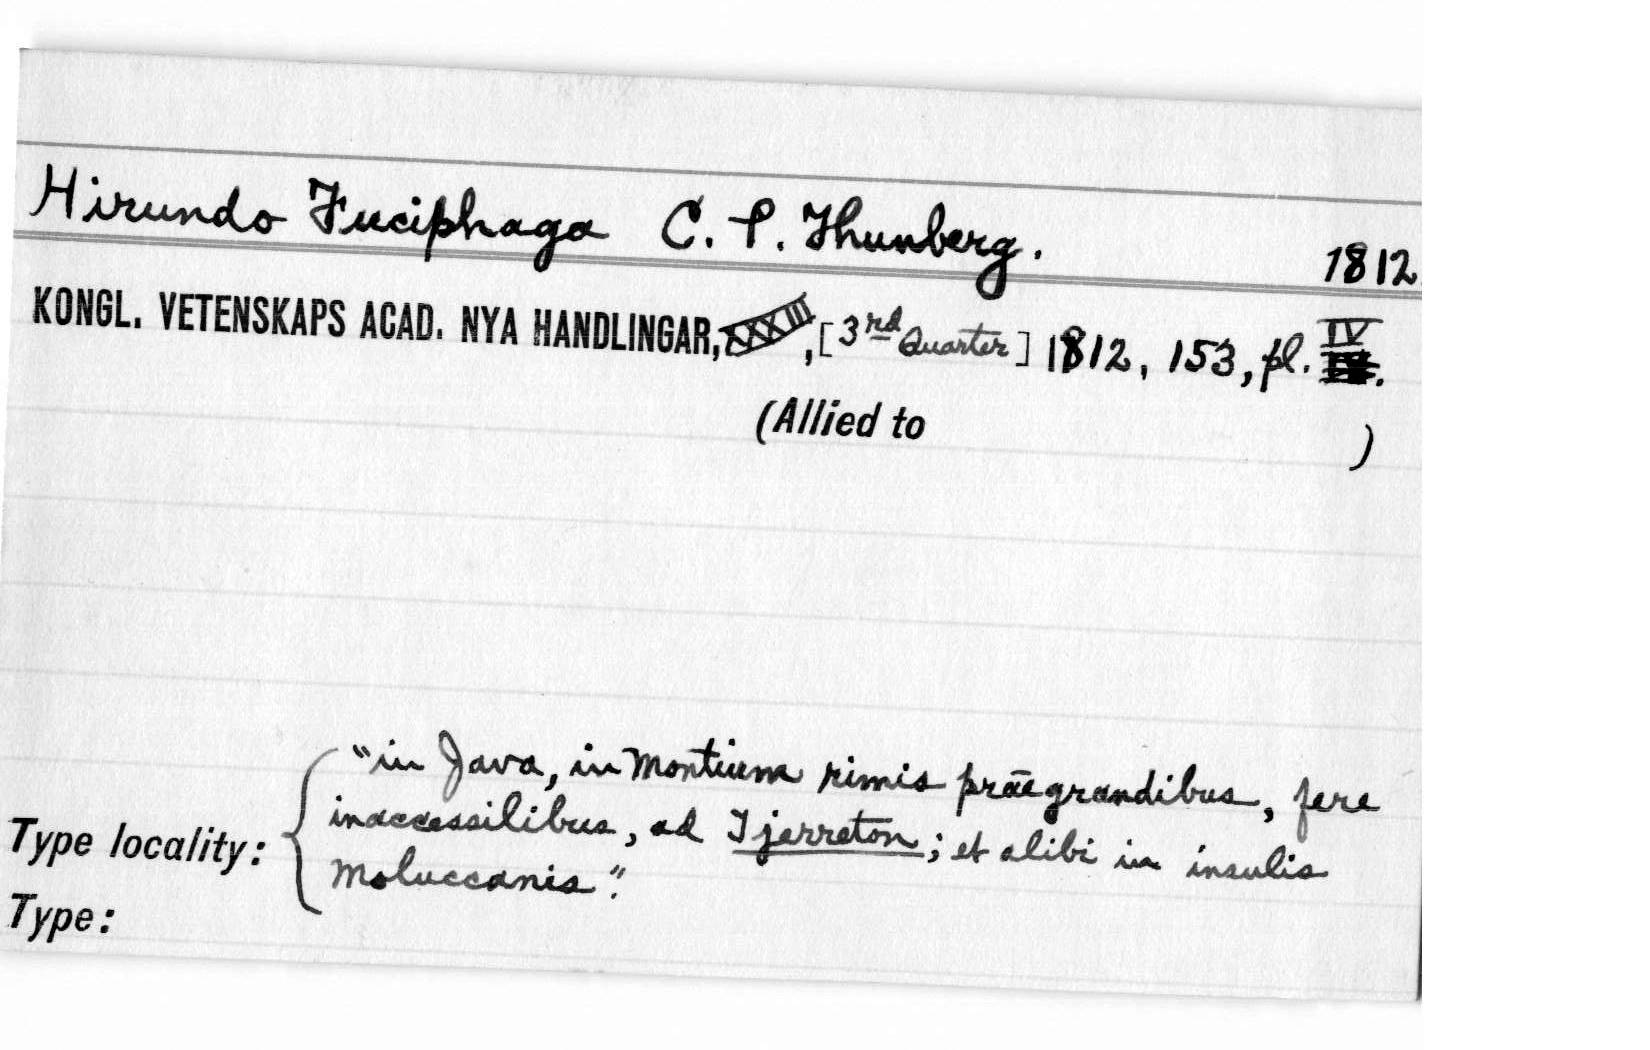 Hirundo Fuciphaga C. P. Thunberg. 1812
KONGL. VETENSKAPS ACAD. NYA HANDLINGAR, XXXIII, [3rd Quarter] 1812, 153, pl. IV.
(Allied to )
"in Java, in Montium rimis præegrandibus, fere
Type locality: inaccessilibus, ad Tjerreton; et alibi in insulis
Moluccanis".
Type: